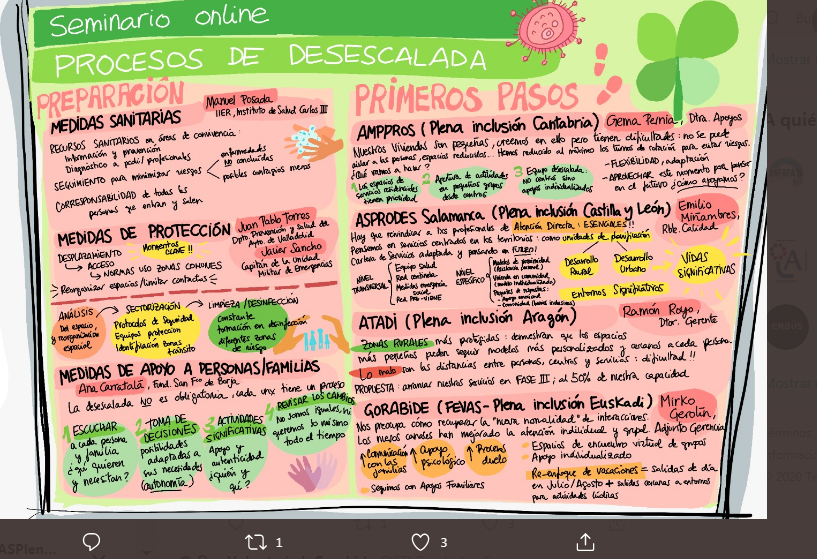 Seminario online
PROCESOS DE DESESCALADA
PREPARACIÓN
MEDIDAS SANITARIAS
Manuel Posada
IIER, Instituto de Salud Carlos III
RECURSOS SANITARIOS en áreas de convivencia:
Información y prevención
Diagnóstico a pcdi/profesionales
SEGUIMIENTO para minimizar riesgos
enfermedades
NO concluidas
posibles contagios nuevos
CORRESPONSABILIDAD de todas las
personas que entran y salen
MEDIDAS DE PROTECCIÓN
Juan Pablo Torres
Dpto. Prevención y salud del
Ayto. de Valladolid
Javier Sancho
Capitán de la Unidad
Militar de Emergencias
DESPLAZAMIENTO
Momentos
CLAVE!!
→ ACCESO
→ NORMAS USO ZONAS COMUNES
Reorganizar espacios/limitar contactos
ANÁLISIS
Del espacio
y reorganización
espacial
→ SECTORIZACIÓN
Protocolos de Seguridad
Equipos protección
Identificación zonas
tránsito
→ LIMPIEZA/DESINFECCIÓN
Constante
formación en desinfección
diferentes zonas
de riesgo
MEDIDAS DE APOYO A PERSONAS/FAMILIAS
Ana Carratalá, Fund. San Fco de Borja
La desescalada NO es obligatoria, cada unx tiene su proceso
1 ESCUCHAR
a cada persona
y familia
¿qué quieren
y necesitan?
2 TOMA DE
DECISIONES
posibilidades
adaptadas a
sus necesidades
(autonomía)
3 ACTIVIDADES
SIGNIFICATIVAS
Apoyo y
autenticidad
¿quién y
qué?
4 REVISAR LOS CAMBIOS
No somos iguales, ni
queremos lo mismo
todo el tiempo
PRIMEROS PASOS
AMPPROS (Plena inclusión Cantabria)
Gema Pernía, Dtra. Apoyos
Nuestras Viviendas son pequeñas, creemos en ello pero tienen dificultades: no se puede
aislar a las personas, espacios reducidos... Hemos reducido al máximo los turnos de rotación para evitar riesgos.
¿Qué vamos a hacer?
1 Los espacios de
servicios residenciales
tienen prioridad
2 Apertura de actividades
en pequeños grupos
desde centros
3 Equipo desescalada:
NO centros sino
apoyos individualizados
- FLEXIBILIDAD, adaptación
- APROVECHAR este momento para pensar
en el futuro ¿cómo apoyamos?
ASPRODES Salamanca (Plena inclusión Castilla y León)
Emilio
Miñambres,
Rble. Calidad
Hay que reivindicar a lxs profesionales de Atención Directa ¡ESENCIALES!!
Pensamos en servicios centrados en los territorios: como unidades de planificación
Cartera de Servicios adaptada y pensando en FUTURO!
NIVEL
TRANSVERSAL
Equipo Salud
Red comunitaria
Medidas emergencia
social
NIVEL
ESPECÍFICO
Desarrollo
Rural
Desarrollo
Urbano
Entornos Significativos
VIDAS
SIGNIFICATIVAS
ATADI (Plena inclusión Aragón)
Ramón Royo,
Dtor. Gerente
ZONAS RURALES más protegidas: demuestran que los espacios
más pequeños pueden seguir modelos más personalizados y cercanos a cada persona.
Lo malo son las distancias entre personas, centros y servicios: dificultad!!
PROPUESTA: arrancar nuestros servicios en FASE III; al 50% de nuestra capacidad
GORABIDE (FEVAS-Plena inclusión Euskadi)
Mirko
Gerolin,
Adjunto Gerencia
Nos preocupa cómo recuperar la "nueva normalidad" de interacciones
Los nuevos canales han mejorado la atención individual y grupal.
↑ Comunicación
con las
familias
↑ Apoyo
psicológico
↑ Procesos
duelo
- Seguimos con Apoyos Familiares
- Espacios de encuentro virtual de grupos
- Apoyo individualizado
Re-enfoque de vacaciones = salidas de día
en Julio/Agosto + salidas cercanas a entornos
para actividades lúdicas
1
3